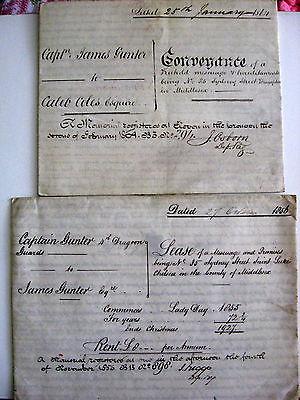 Dated 25th January 1864
Captn James Gunter
to
Caleb Esquire
Conveyance of a
Freehold messuage & hereditaments
being No. 35 Sydney Street Brompton
in Middlesex
A Memorial registered at in the afternoon the
second of February 1864. B3. No.
J. Osborn
Dep Reg
Dated 27 October 1856
Captain Gunter 4th Dragoon
Guards
to
James Gunter Esqre
Lease of a Messuage and Premises
being No. 35 Sydney Street Saint Lukes
Chelsea in the County of Middlesex
Commences Lady Day 1855
For years 72 3/4
Ends Christmas 1927
Rent £ per Annum
A Memorial registered at in the afternoon the fourth
of November 1856 B
Dep Reg